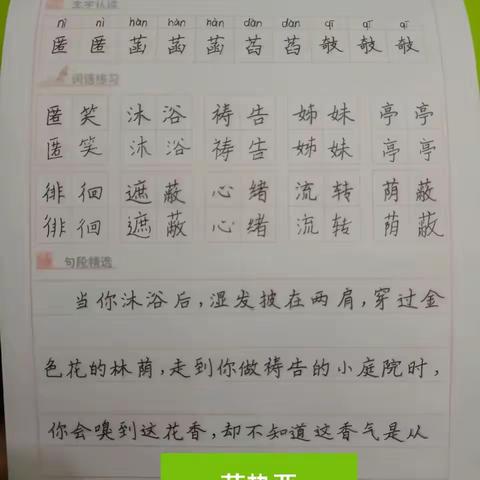 生字认读
nì nì hàn hàn hàn dàn dàn qī qī qī
匿 匿 菡 菡 菡 萏 萏 攲 攲 攲
词语练习
匿笑 沐浴 祷告 姊妹 亭亭
匿笑 沐浴 祷告 姊妹 亭亭
徘徊 遮蔽 心绪 流转 荫蔽
徘徊 遮蔽 心绪 流转 荫蔽
句段精选
当你沐浴后,湿发披在两肩,穿过金
色花的林荫,走到你做祷告的小庭院时,
你会嗅到这花香,却不知道这香气是从